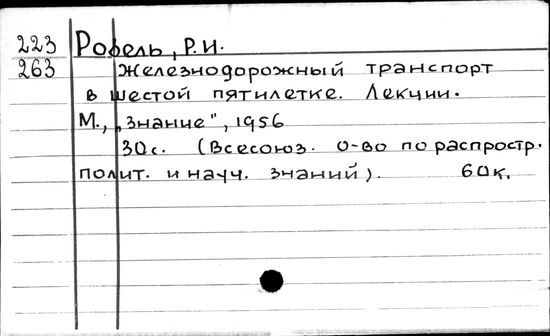 223 Робель, Р.И.
263 Железнодорожный транспорт
в шестой пятилетке. Лекции.
М., „Знание", 1956
30с. (Всесоюз. о-во по распростр.
полит. и науч. знаний). 60к.